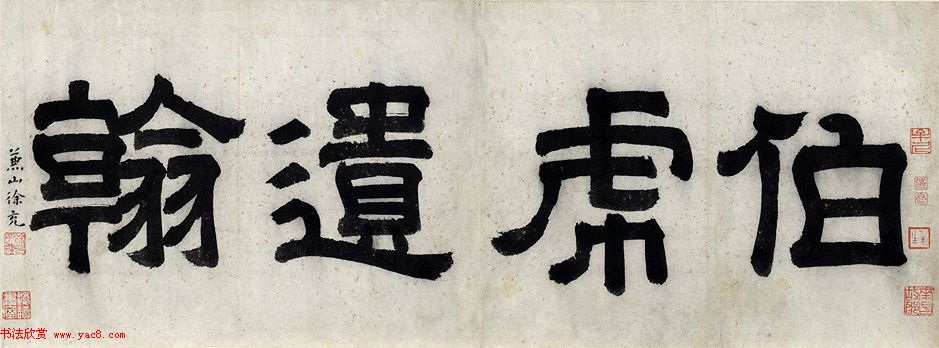 伯虎遺翰
蕉山徐充
书法欣赏 www.yac8.com